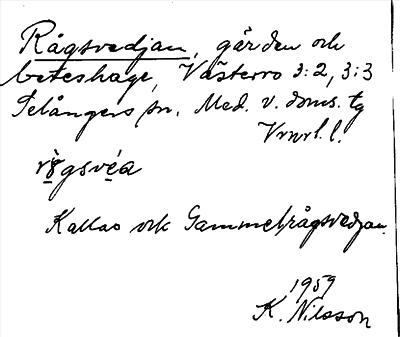 Rågsvedjan, gården och
beteshage, Västerro 3:2, 3:3
Selångers sn. Med. v. doms. tg
Vrwrl. l.
rågsvéa
Kallas ock Gammelrågsvedjan.
1959
K. Nilsson